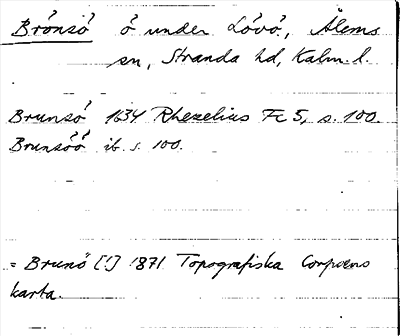 Brónsö́ ö under Lövö, Ålems
sn, Stranda hd, Kalm. l.
Brunsö́ 1634 Rhezelius Fc 5, s. 100.
Brunsö́ö́ ib. s. 100.
= Brunö [!] 1871 Topografiska Corpsens
karta.